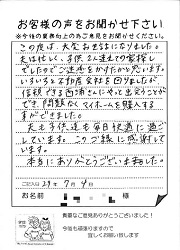 お客様の声をお聞かせ下さい
※今後の業務向上の為ご意見をお聞かせください。
この度は、大変お世話になりました。
夫は忙しく、子供2人連れての家探し
でしたのでご迷惑をおかけしたと思います。
いろいろと不動産会社を回りましたが
信頼できる西浦さんにやっと出会うことが
でき、問題なくマイホームを購入する
事ができました。
夫も子供達も毎日快適に過ごし
ています。このご縁に感謝して
います。
本当にありがとうございました。
ご記入日 29年 7月 9日
お名前
貴重なご意見ありがとうございました!
今後も頑張りますので
宜しくお願い致します